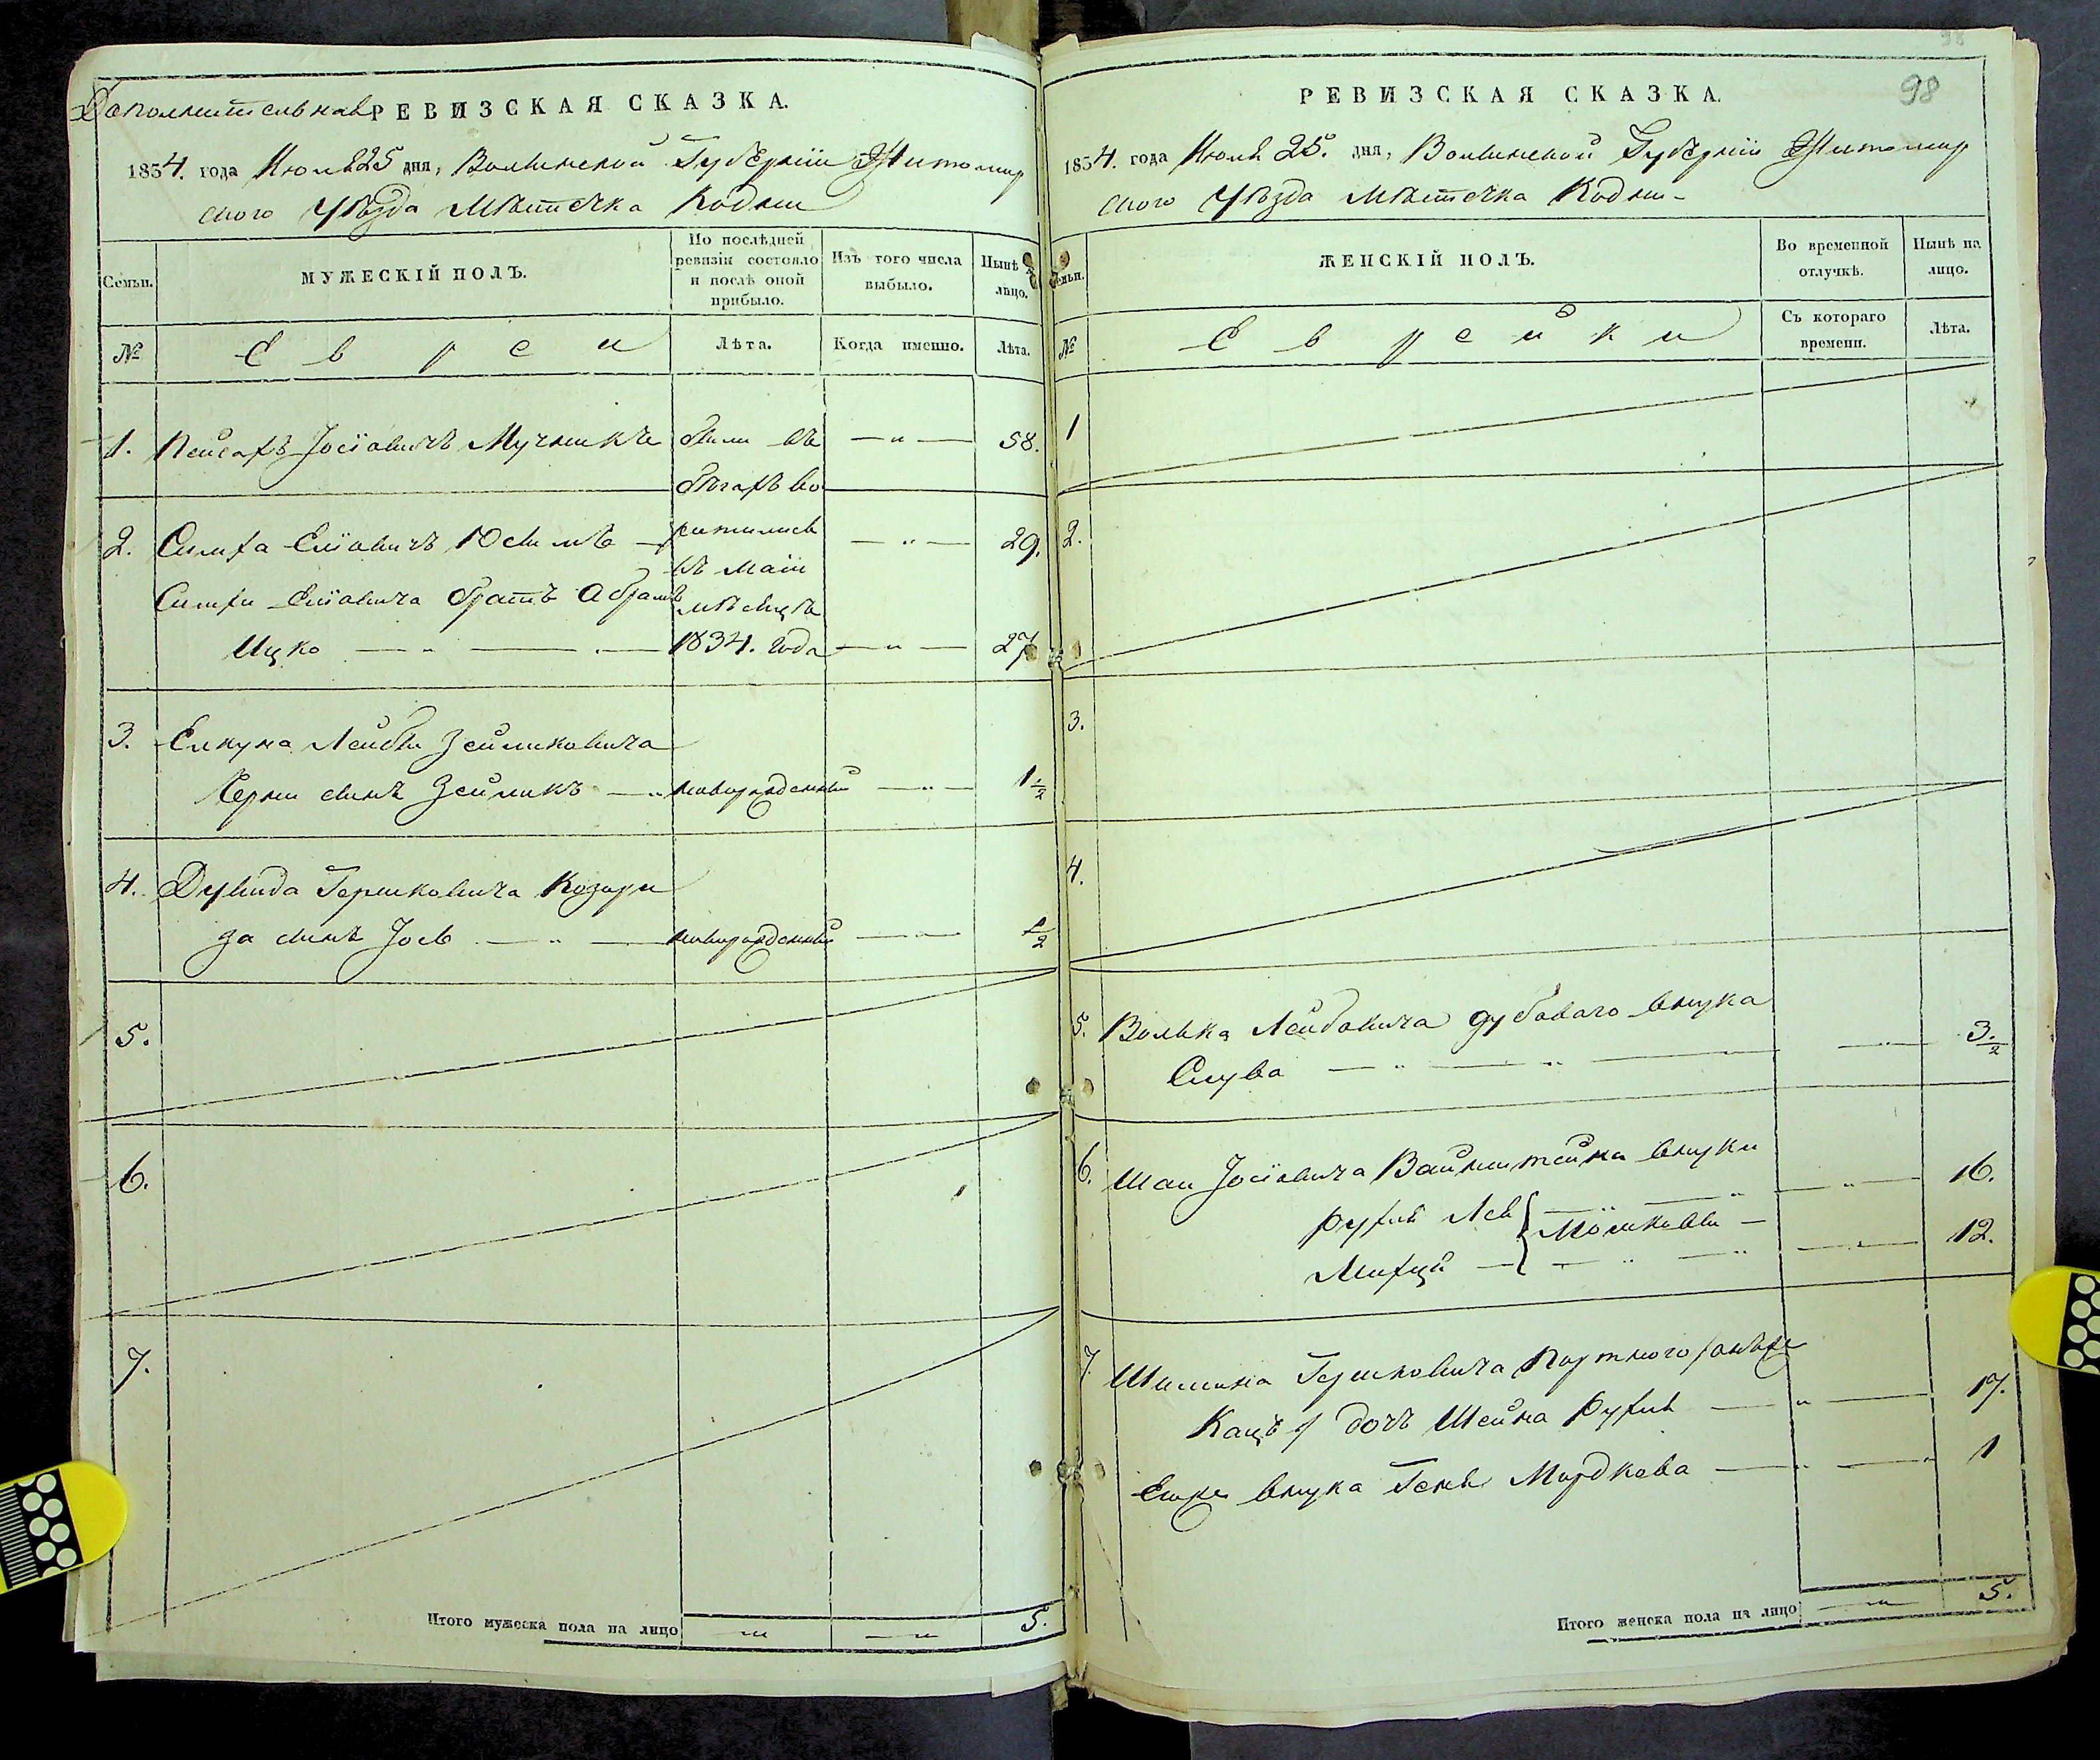 Дополнительная РЕВИЗСКАЯ СКАЗКА.
1854. года Июля 25 дня, Волынской Губерніи Житомир
скаго Уѣзда Мѣстечка Кодни
Семьи.
МУЖЕСКІЙ ПОЛЪ.
По послѣдней ревизіи состояло и послѣ оной прибыло.
Изъ того числа выбыло.
Нынѣ на лицо.
№
Евреи
Лѣта.
Когда именно.
Лѣта.
1. Пейсахъ Іосіовичъ Мучникъ были въ —„— 58.
бѣгахъ во
2. Симха Еліовичъ ротились —„— 29.
въ маіи
Симхи Еліовича братъ Абрамъ мѣсяцѣ
Ицко —„— 1834. года —„— 27
3. Лейбы Зейликовича
сынъ Зейликъ —„ новорожденный —„— 1 1/2
4. Дувида Гершковича
за сынъ Іось —„— новорожденный —„— 1/2
5.
6.
7.
Итого мужеска пола на лицо —„— —„— 5.
98
РЕВИЗСКАЯ СКАЗКА.
1854. года Июля 25. дня, Волынской Губерніи Житомир
скаго Уѣзда Мѣстечка Кодни-
Семьи.
ЖЕНСКІЙ ПОЛЪ.
Во временной отлучкѣ.
Нынѣ на лицо.
№
Еврейки
Съ котораго времени.
Лѣта.
1
2.
3.
4.
5. Волька Лейбовича Дубоваго внука
Слува —„—„— —„— 3 1/2
6. Шаи Іосіовича Вайнштейна внуки
Рухля Лея —„— —„— 16.
Мошковы —
—„—„ —„— 12.
7. Шлиома Гершковича Портного
Кацъ / дочъ Шейна Рухля —„— 17.
внука Геня Мордкова —„— 1
Итого женска пола на лицо —„— 5.